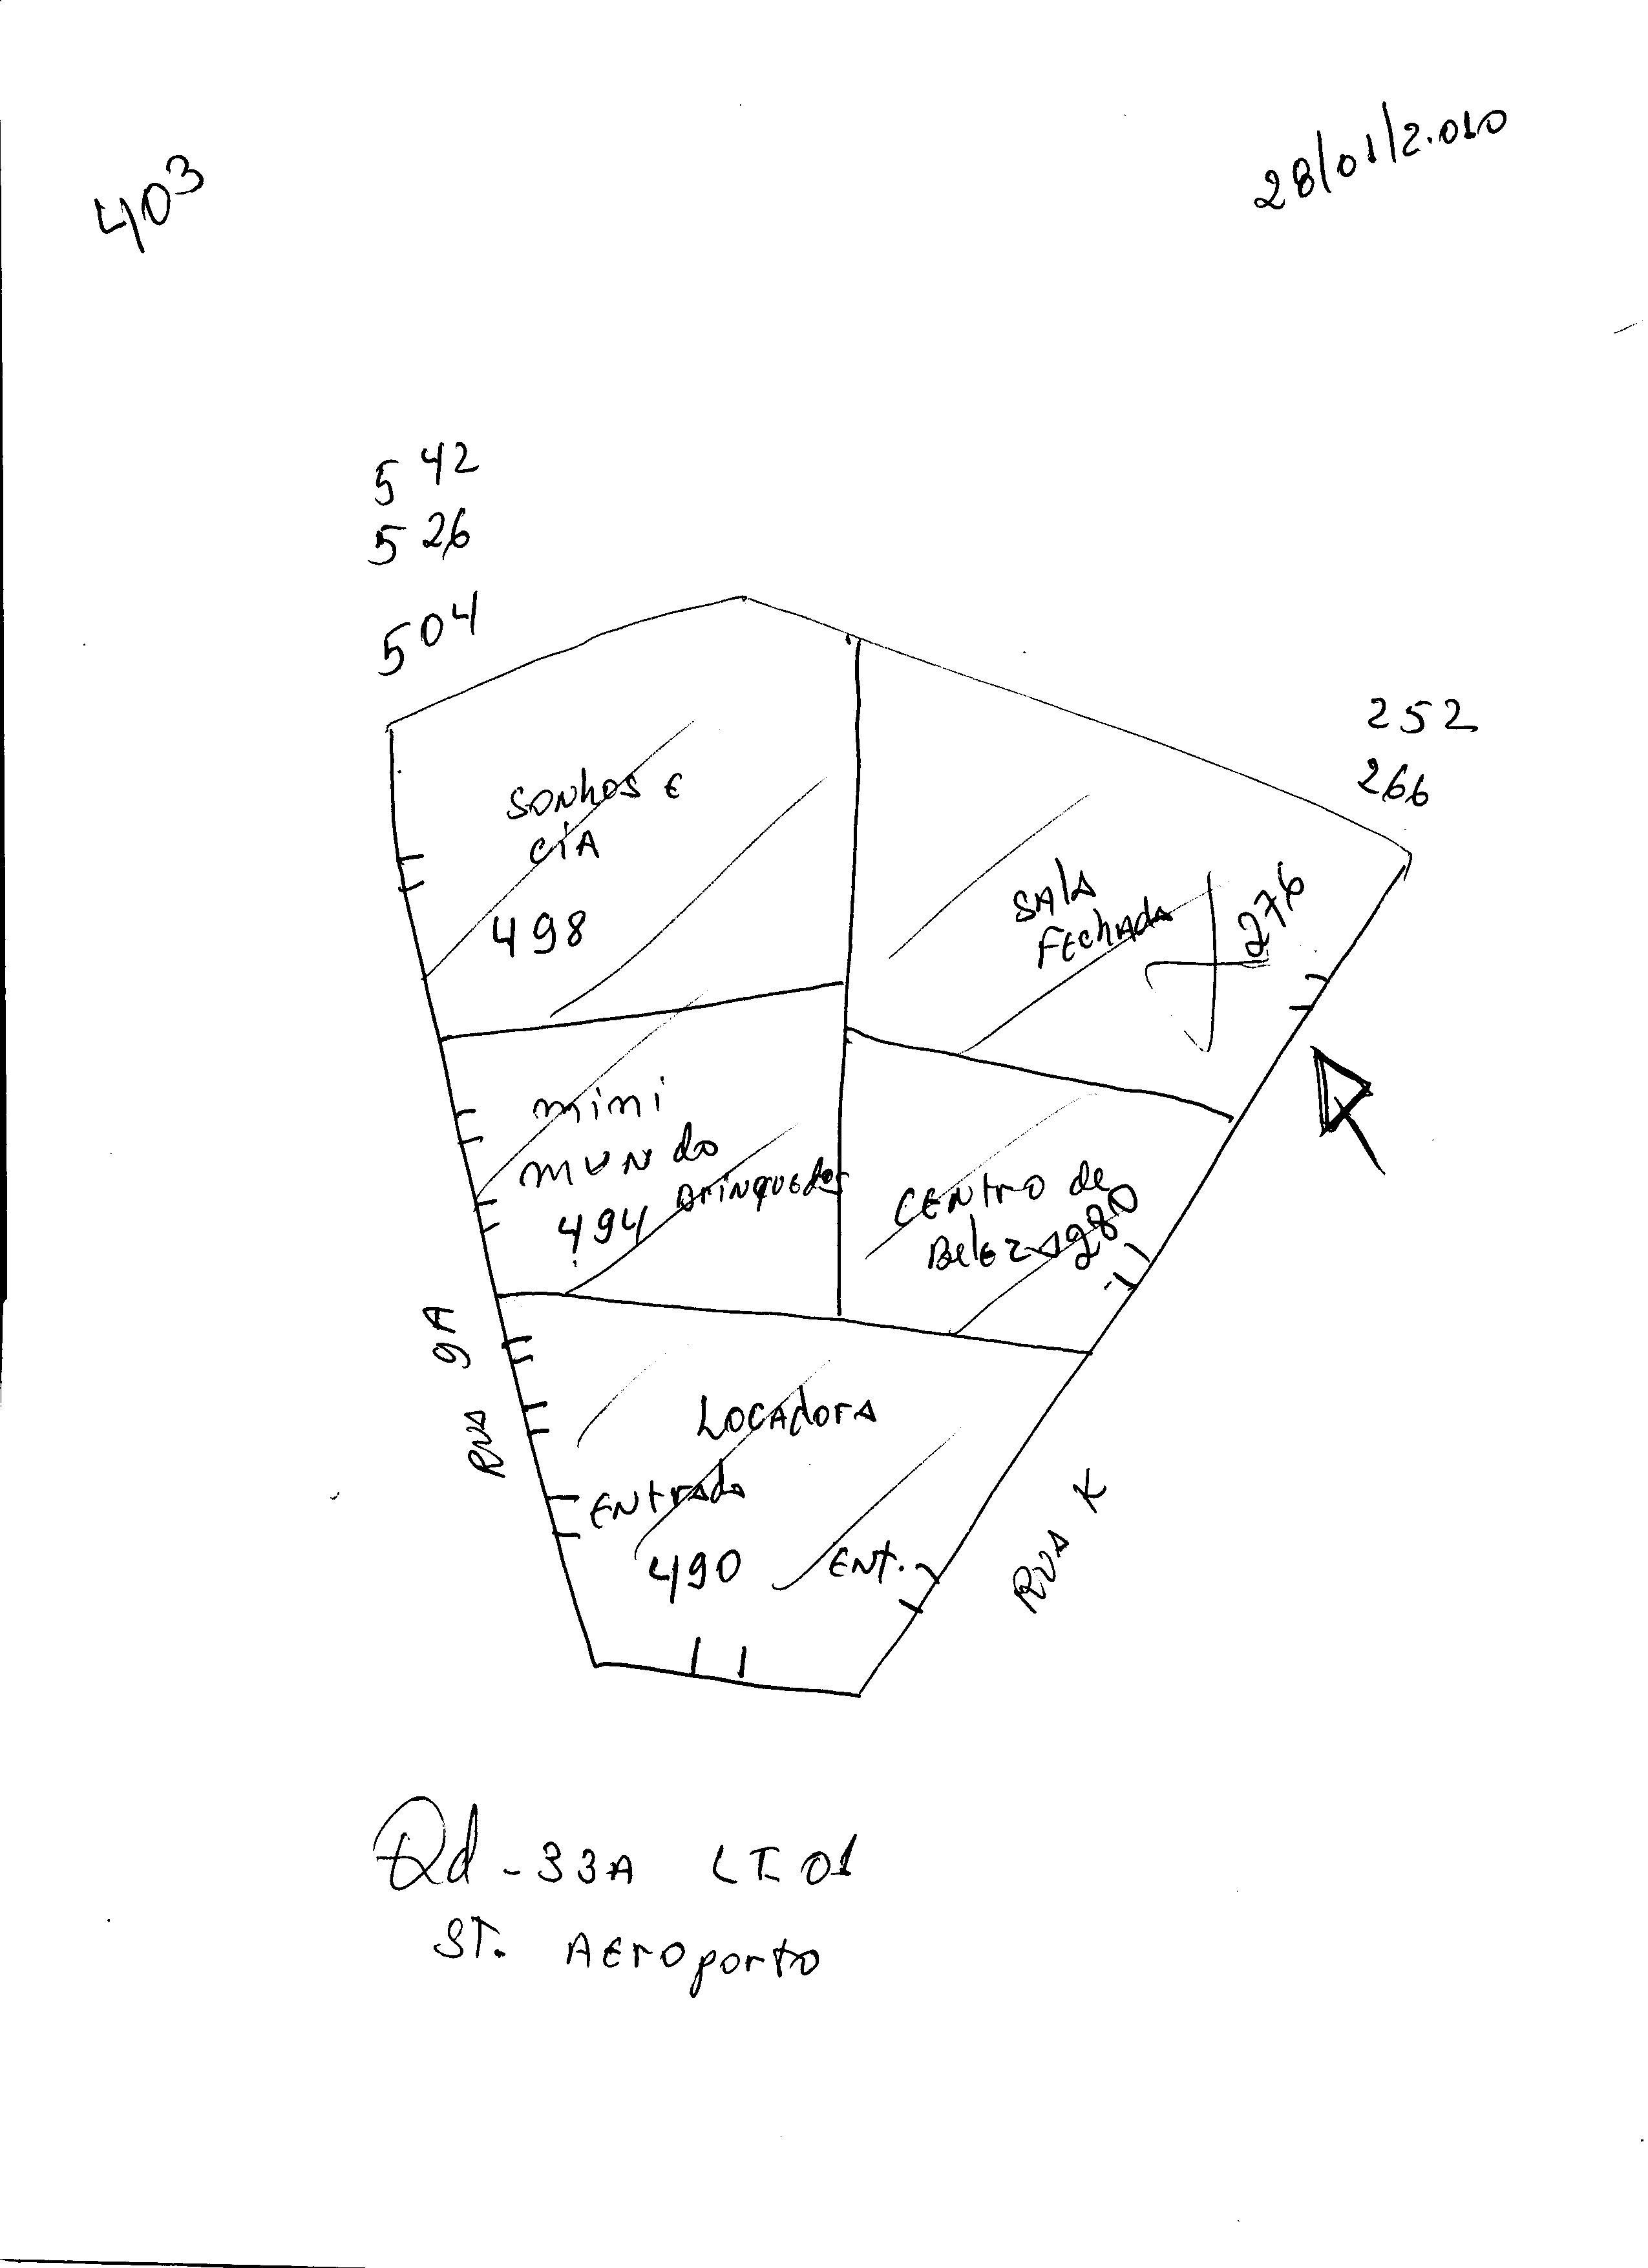 403
28/01/2.010
542
526
504
252
266
SONhOS E
CIA
498
SALA
FEChADA
276
mini
MUNdo
BrINQUEdos
494
CENtro de
BElEzA 280
RUA 9A
LOCAdorA
ENtrada
490
ENt.
RUA K
Qd - 33A LT. 01
ST. AEroporto